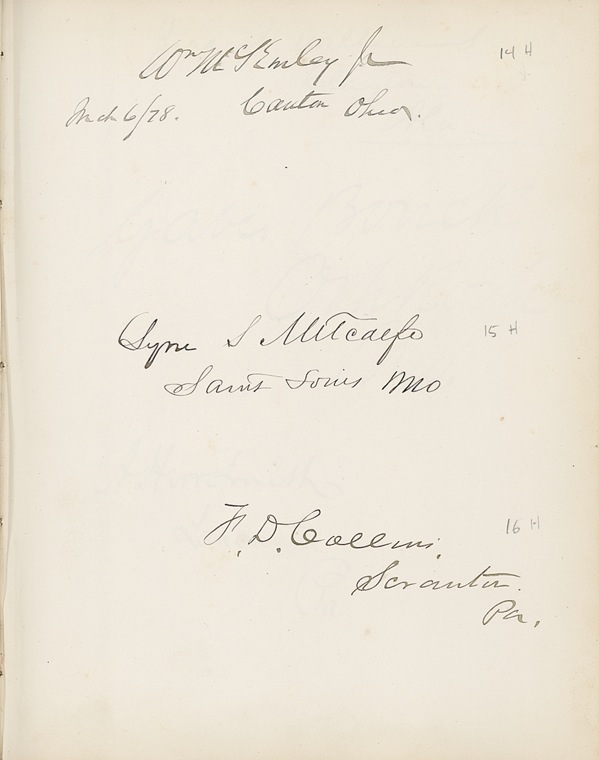 Wm McKinley Jr 14 H
Mch 6/78. Canton Ohio.
Lyne S Metcalfe 15 H
Saint Louis Mo
F. D. Collins. 16 H
Scranton.
Pa.